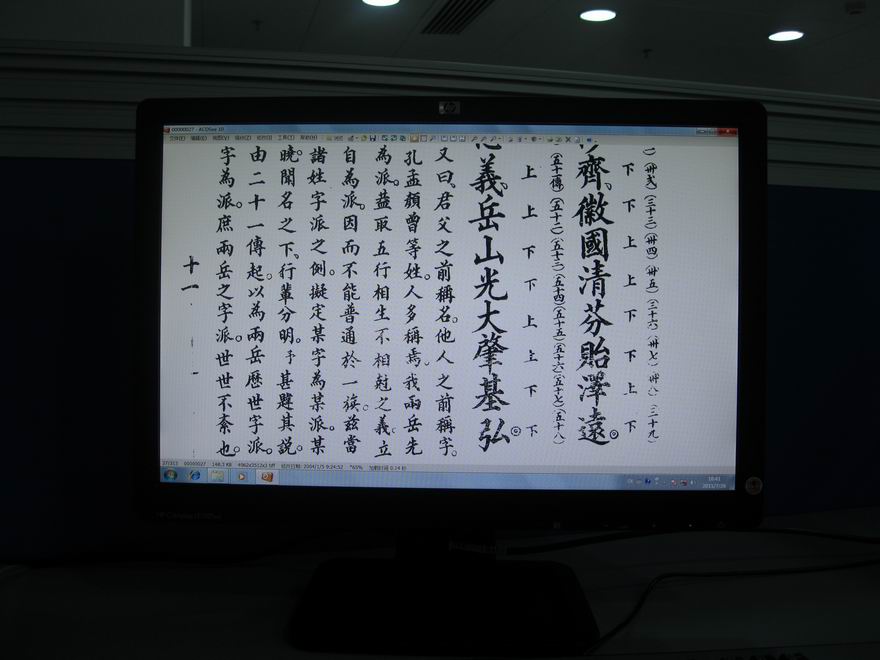 00000027 - ACDSee 10
(卅弍)(三十三)(卅四)(卅五)(三十六)(卅七)(卅八)(三十九)
下下上上下下上下
齊、徽國清芬貽澤遠。
(五十傳)(五十二)(五十三)(五十四)(五十五)(五十六)(五十七)(五十八)
上上下下上上下下
義、岳山光大肇基弘。
又曰、君父之前稱名。他人之前稱字。
孔孟顏曾等姓。人多稱焉。我兩岳先
為派。益取五行相生不相尅之義。立
自為派。因而不能普通於一族。茲當
諸姓字派之側。擬定某字為某派。某
曉。聞名之下、行輩分明。予甚韙其說。
由二十一傳起。以為兩岳歷世字派。
字為派。庶兩岳之字派。世世不紊也。
十一
00000027
2004/1/5 9:24:52
hp
16:41